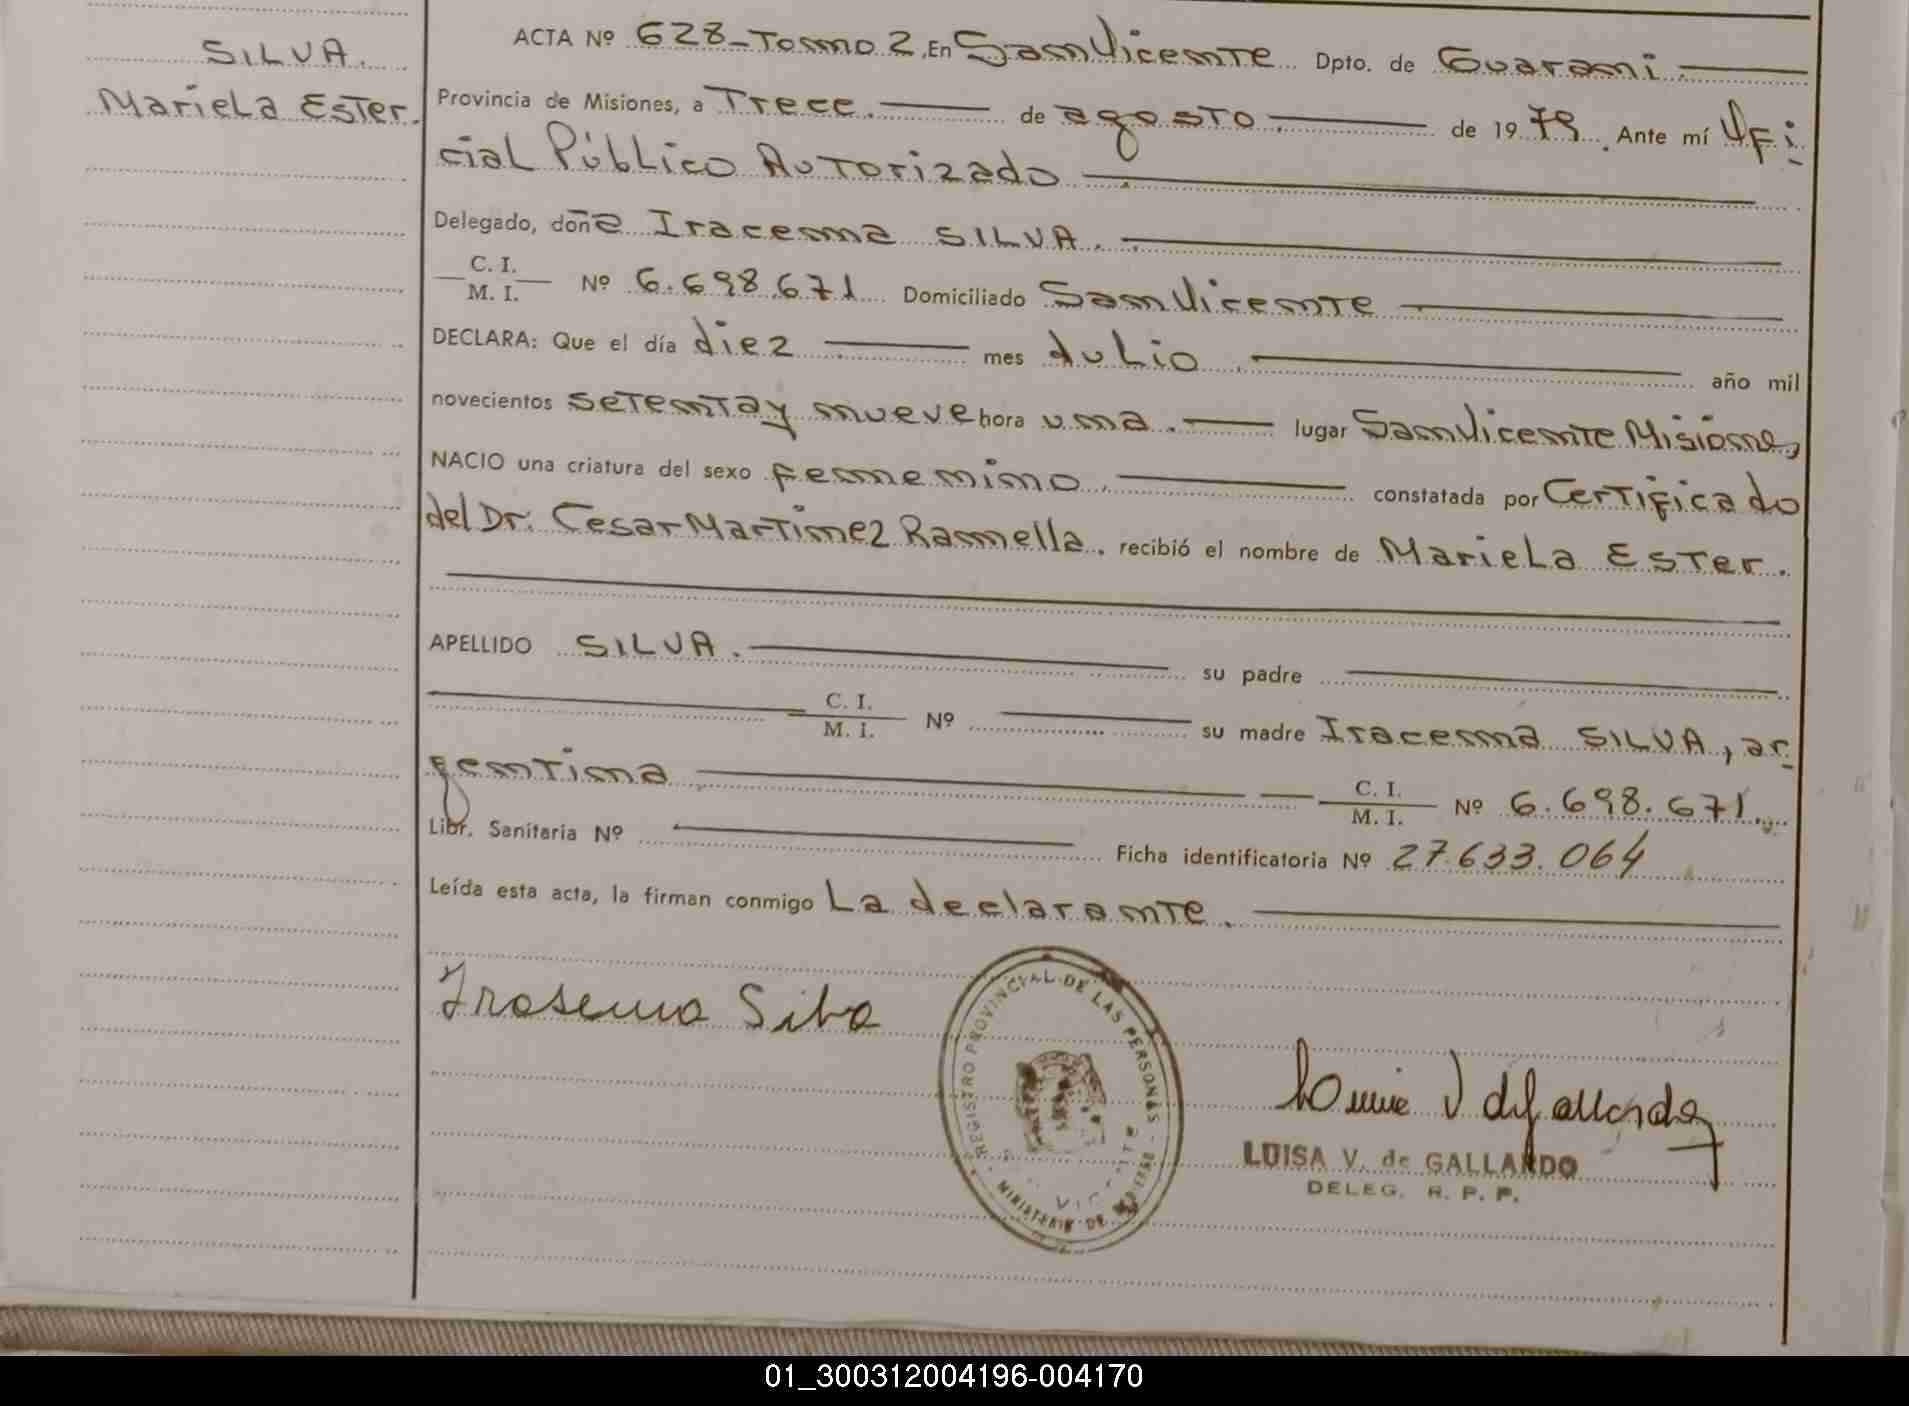 SILVA.
Mariela Ester.
ACTA Nº 628-Tomo 2. En San Vicente Dpto. de Guaraní
Provincia de Misiones, a Trece. de agosto. de 1979. Ante mí Ofi
cial Público Autorizado
Delegado, doña Iracema SILVA.
C. I.
M. I. Nº 6.698.671 Domiciliado San Vicente
DECLARA: Que el día diez mes Julio año mil
novecientos setenta y nueve hora una. lugar San Vicente Misiones,
NACIO una criatura del sexo femenino. constatada por Certificado
del Dr. Cesar Martinez Ramella. recibió el nombre de Mariela Ester.
APELLIDO SILVA. su padre
C. I.
M. I. Nº su madre Iracema SILVA, ar
gentina C. I.
M. I. Nº 6.698.671.
Libr. Sanitaria Nº Ficha identificatoria Nº 27.633.064
Leída esta acta, la firman conmigo La declarante.
Irasema Silva
REGISTRO PROVINCIAL DE LAS PERSONAS
MINISTERIO DE
LUISA V. de GALLARDO
DELEG. R. P. P.
01_300312004196-004170